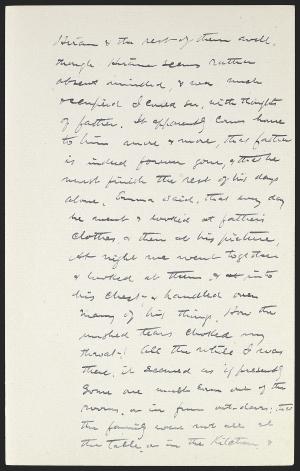 Hiram & the rest of them well,
though Hiram seems rather
absent minded, & was much
occupied I could see, with thoughts
of father. It apparently comes home
to him more & more, that father
is indeed forever gone, & that he
must finish the rest of his days
alone. Emma said, that every day
he went & looked at father's
clothes & then at his picture.
At night we went together
& looked at them, & into
his chest & handled over
many of his things. How the
unshed tears choked my
throat! All the while I was
there, it seemed as if presently
some one must come out of the
rooms, or in from out-doors; that
the family were not all at
the table, or in the Kitchen, &